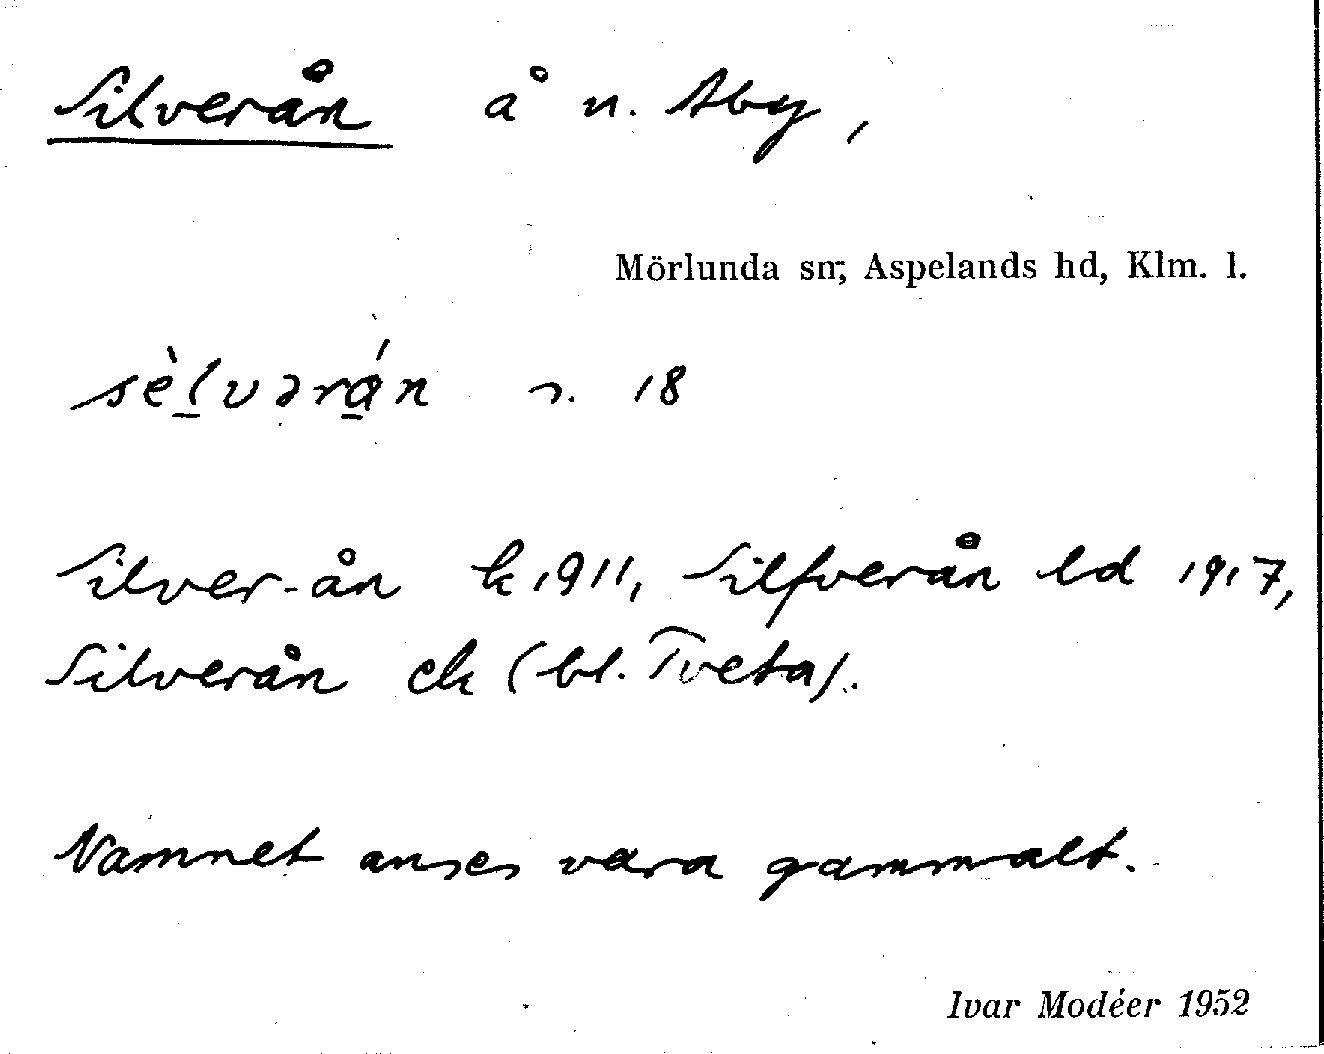 Silverån å n. Åby,
Mörlunda sn, Aspelands hd, Klm. l.
sèl̠vərá̠n s. 18
Silver-ån k 1911, Silfverån ld 1917,
Silverån ek (bl. Tveta).
Namnet anses vara gammalt.
Ivar Modéer 1952